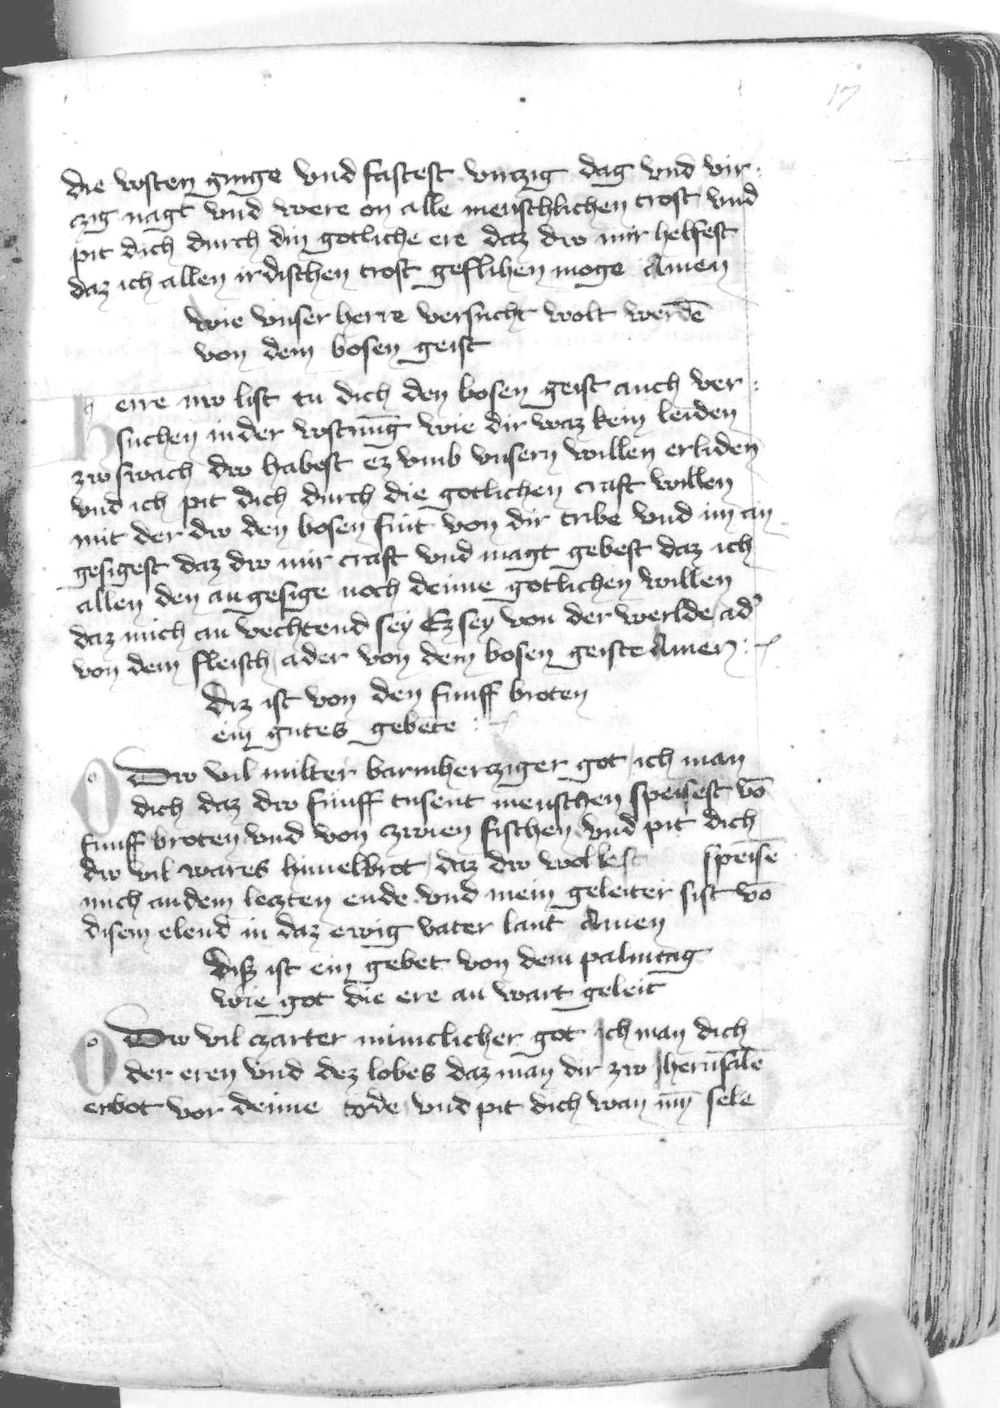 17
die wsten ginge vnd fastest virczig dag vnd vir
czig nagt vnd were on alle menschlichen trost vnd
pit dich durch din gotliche ere daz dw mir helfest
daz ich allen irdischen trost geflihen moge Amen
wie vnser herre versucht wolt werdē
von dem bosen geist
Herre nw list tu dich den bosen geist auch ver
suchen in der wstnūg wie dir waz kein leiden
zw swach dw habest ez vmb vnsern willen erliden
vnd ich pit dich durch die gotlichen craft willen
mit der dw den bosen fint von dir tribe vnd im an
gesigest daz dw mir craft vnd magt gebest daz ich
allen den angesige noch deine gotlichen willen
daz mich an vechtend sey Ez sey von der werlde ad'
von dem fleisch ader von dem bosen geiste Amen
Diz ist von den funff broten
ein gutes gebete
O Dw vil milter barmhercziger got ich man
dich daz dw funff tusent menschen speisest vō
funff broten vnd von zwien fischen vnd pit dich
dw vil wares himelbrot daz dw wollest speisē
mich an dem leczten ende vnd mein geleiter sist vō
disem elend in daz ewig vater lant Amen
Disz ist ein gebet von dem palmtag
wie got die ere an wart geleit
O Dw vil czarter minclicher got ich man dich
der eren vnd dez lobes daz man dir zw Jherusalē
erbot vor deine tode vnd pit dich wan mī sele